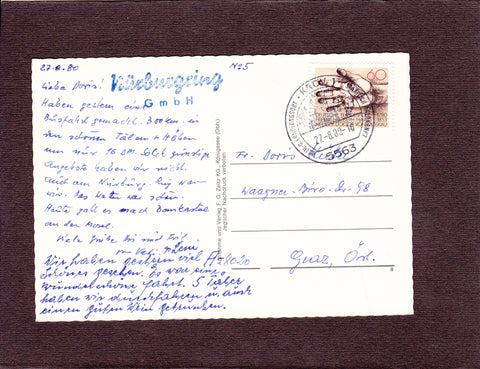 27.8.80
No 5
Liebe Doris!
Nürburgring
GmbH
Haben gestern eine
Busfahrt gemacht.
den schönen Tälern + Höhen
nur 16 DM. Solch günstige
Angebote haben wir nicht.
Auch am Nürburg. Ring war-
wir. Das Wetter war schön.
Heute geht es nach Bernkastel
an der Mosel.
Viele Grüße
Wir haben gestern viel
Schönes gesehen. Es war eine
wunderschöne Fahrt. 5 Täler
haben wir durchfahren u. auch
einen guten Wein getrunken.
Aufnahme und Verlag F. G. Zeitz KG, Königssee (Obb.)
Jeglicher Nachdruck verboten
60
27.-8.80-16
5563
Fr. Doris
Waagner-Biro-Str. 98
A-8020
Graz, Öst.